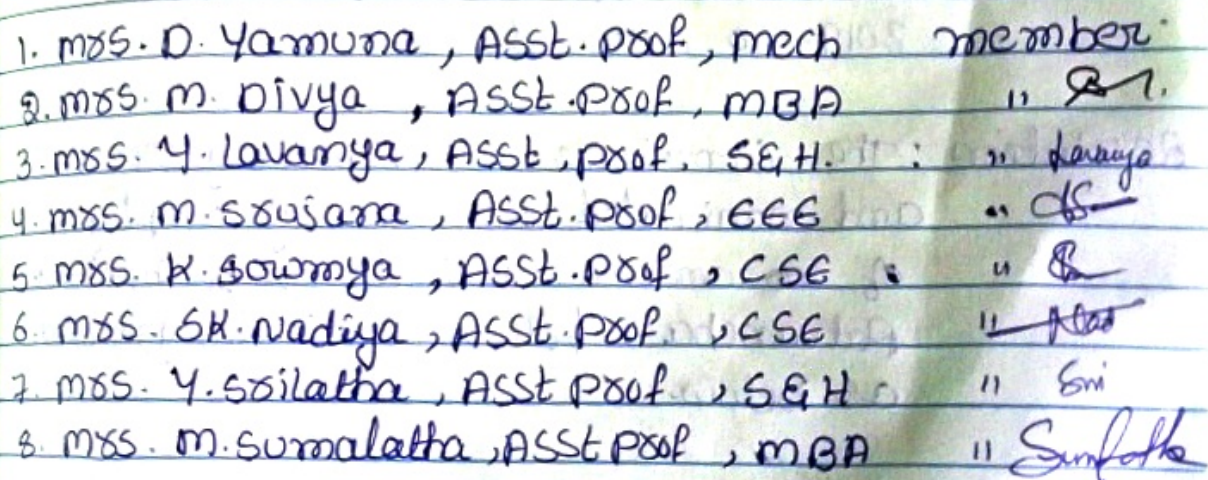 1. Mrs. D. Yamuna, Asst. Prof, Mech member
2. Mrs. M. Divya, Asst. Prof, MBA "
3. Mrs. Y. Lavanya, Asst. Prof, S&H. : " Lavanya
4. Mrs. M. Srujana, Asst. Prof, EEE "
5. Mrs. K. Sowmya, Asst. Prof, CSE "
6. Mrs. SK. Nadiya, Asst. Prof, CSE "
7. Mrs. Y. Srilatha, Asst Prof, S&H " Sri
8. Mrs. M. Sumalatha, Asst Prof, MBA "